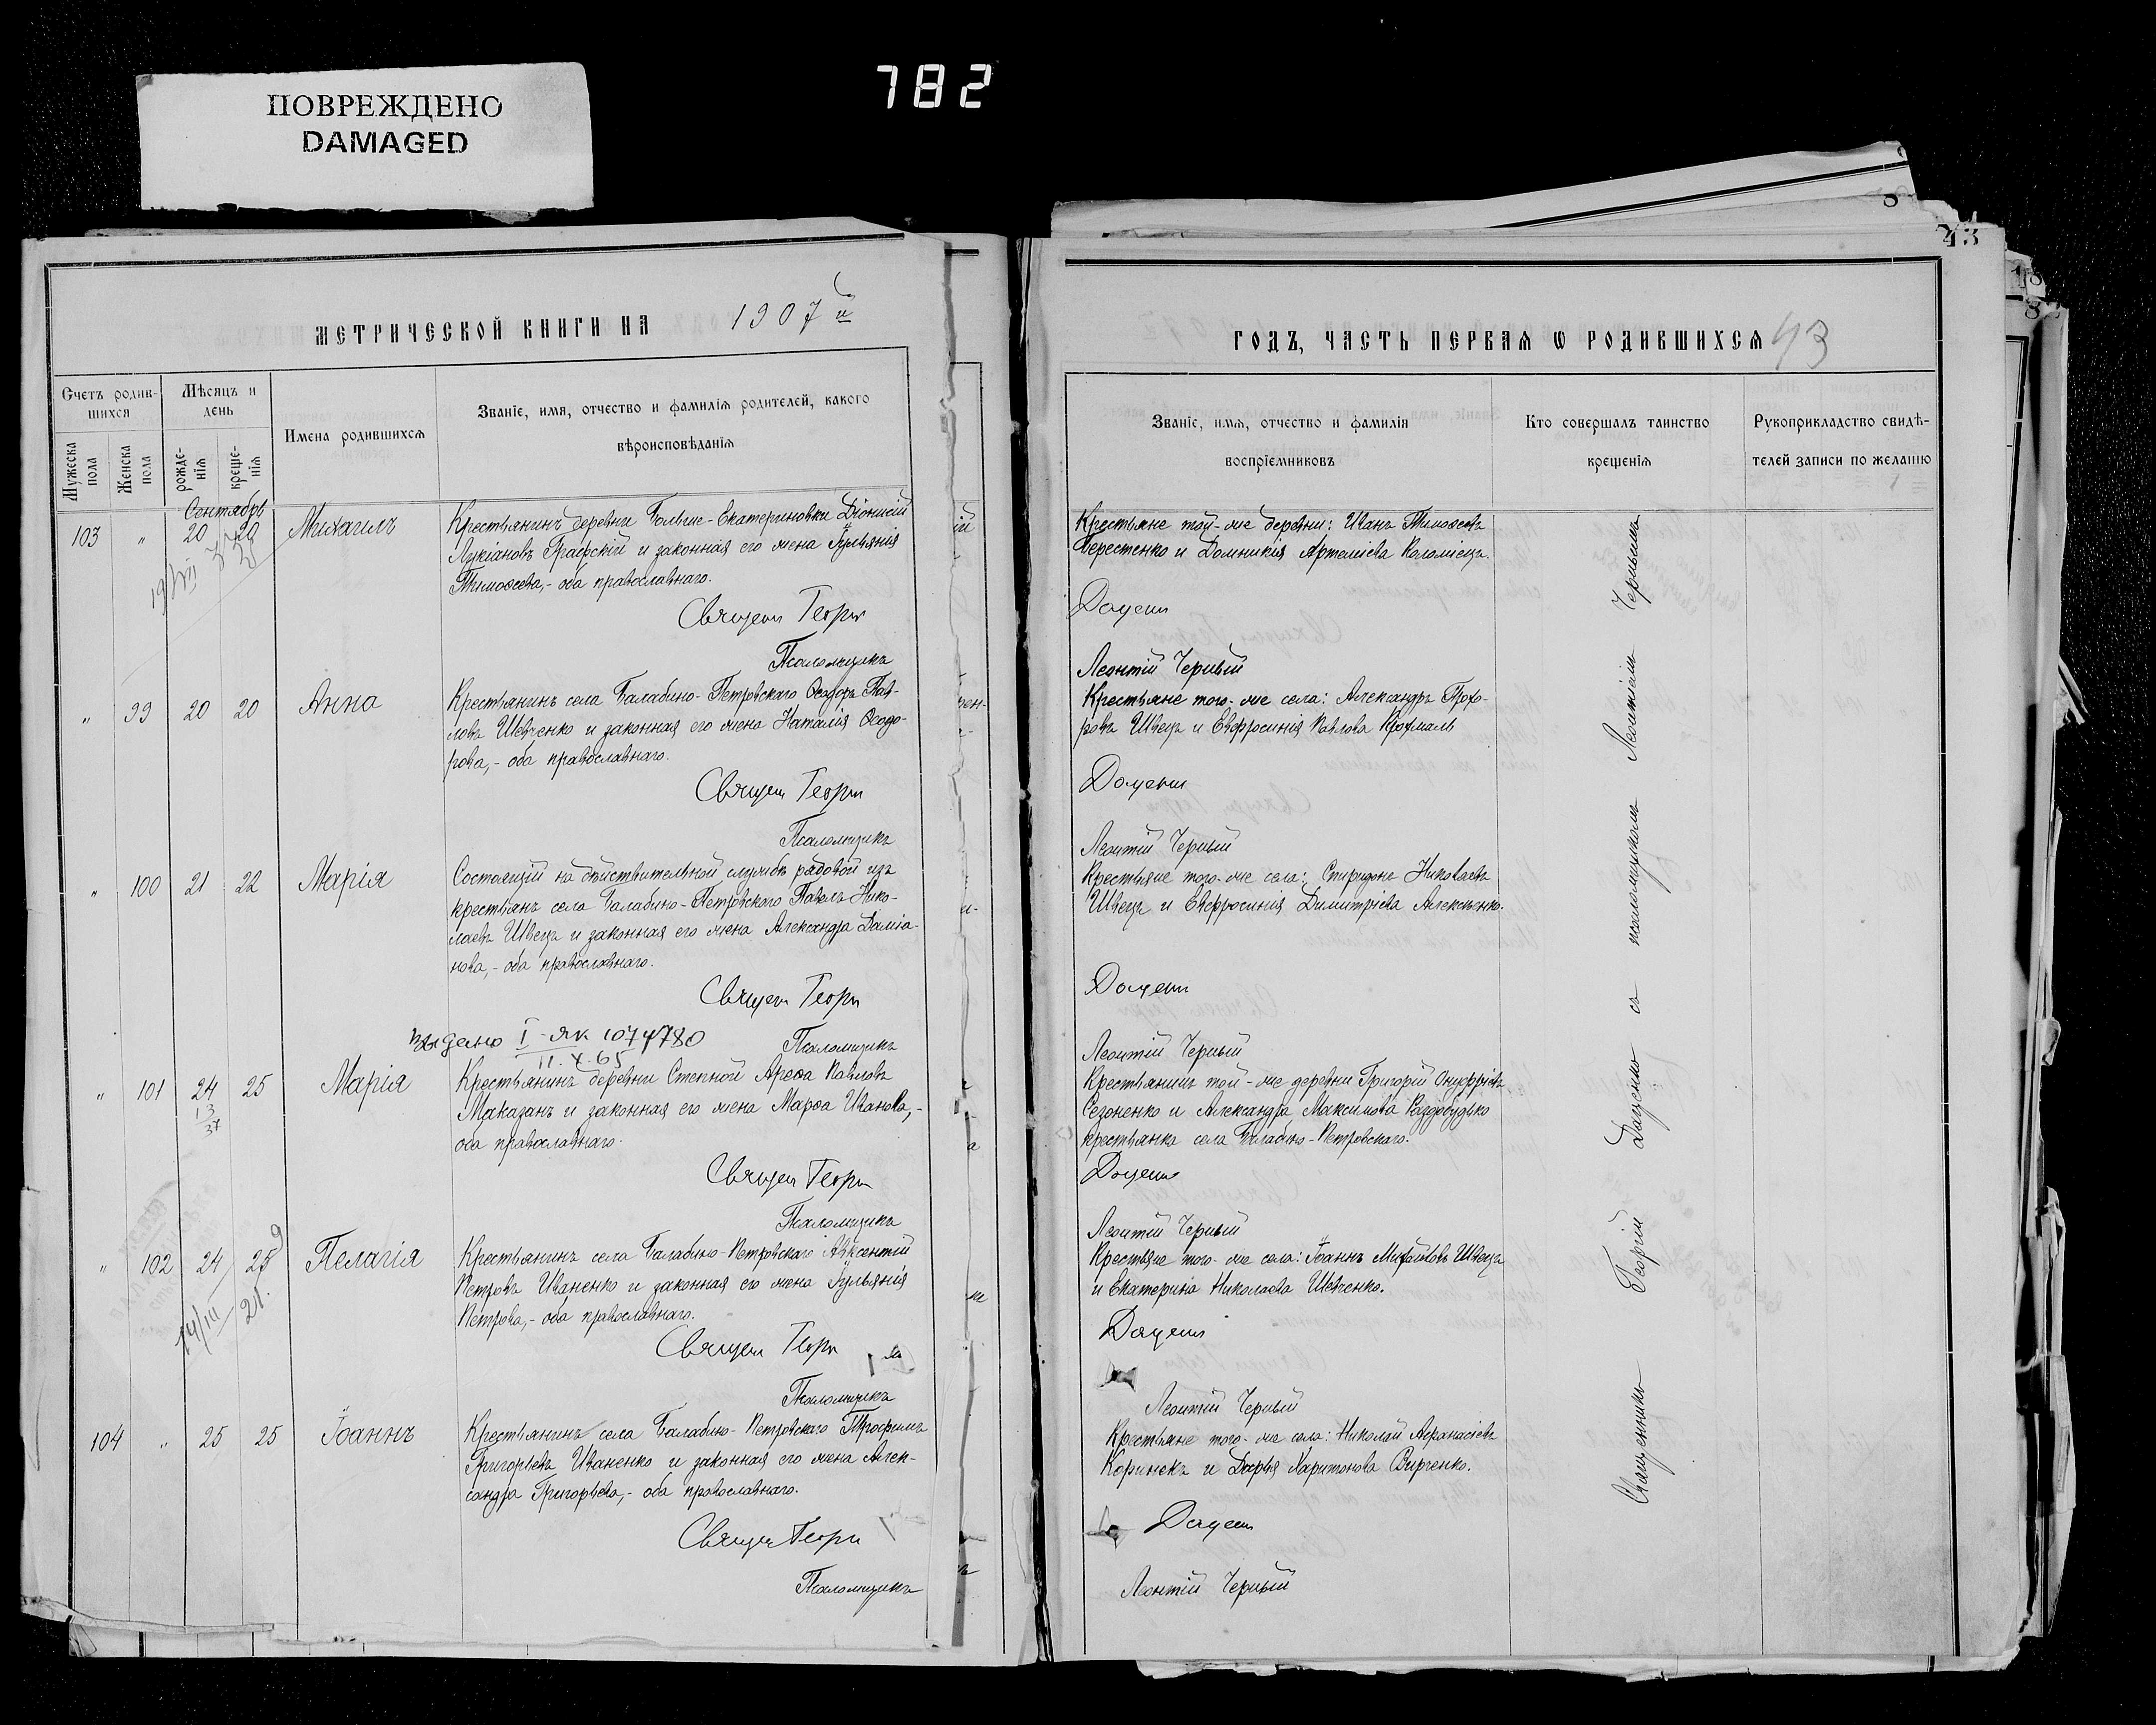 ПОВРЕЖДЕНО
DAMAGED
782
43
МЕТРИЧЕСКОЙ КНИГИ НА 1907й
Счетъ родив-
шихся
Мѣсяцъ и
день
Мужеска
пола
Женска
пола
рожде-
нія
креще-
нія
Имена родившихся
Званіе, имя, отчество и фамилія родителей, какого
вѣроисповѣданія
Сентябрь
103 " 20 20 Михаилъ
Крестьянинъ деревни Больше-Екатериновки Діонисій
Лукіановъ Графскій и законная его жена Іульянія
Тимоѳеева,- оба православнаго.
Священ Георг
Псаломщикъ
" 99 20 20 Анна
Крестьянинъ села Балабино-Петровскаго Ѳеодоръ Пав-
ловъ Шевченко и законная его жена Наталія Ѳеодо-
рова,- оба православнаго.
Священ Георг
Псаломщикъ
" 100 21 22 Марія
Состоящій на дѣйствительной службѣ рядовой изъ
крестьянъ села Балабино-Петровского Павелъ Нико-
лаевъ Швецъ и законная его жена Александра Даміа-
нова,- оба православнаго.
Священ Георг
выдано I-як 1074780
11.X.65
Псаломщикъ
" 101 24 25 Марія
13
37
Крестьянинъ деревни Степной Ареѳа Павловъ
Маказанъ и законная его жена Марѳа Иванова,-
оба православнаго.
Священ Георг
Псаломщикъ
" 102 24 25 Пелагія
14/III 21.
Крестьянинъ села Балабино-Петровскаго Авксентій
Петровъ Иваненко и законная его жена Іульянія
Петрова,- оба православнаго.
Священ Георг
Псаломщикъ
104 " 25 25 Іоаннъ
Крестьянинъ села Балабино-Петровскаго Трофимъ
Григорьевъ Иваненко и законная его жена Алек-
сандра Григорьева,- оба православнаго.
Священ Георг
Псаломщикъ
ГОДЪ, ЧАСТЬ ПЕРВАЯ Ѡ РОДИВШИХСЯ 43
Званіе, имя, отчество и фамилія
воспріемниковъ
Кто совершалъ таинство
крещенія
Рукоприкладство свидѣ-
телей записи по желанію
Крестьяне той-же деревни: Иванъ Тимоѳеевъ
Берестенко и Домникія Артеміева Коломіецъ.
Доценк
Леонтій Черный
Крестьяне того-же села: Александръ Прохо-
ровъ Швецъ и Евфросинія Павлова Крохмаль
Доценк
Леонтій Черный
Крестьяне того-же села: Спиридонъ Николаевъ
Швецъ и Евфросинія Димитріева Алексѣенко.
Доценк
Леонтій Черный
Крестьянинъ той-же деревни Григорій Онуфріевъ
Сезоненко и Александра Максимова Раздобудько
крестьянка села Балабино-Петровскаго.
Доценк
Леонтій Черный
Крестьяне того-же села: Іоаннъ Михайловъ Швецъ
и Екатерина Николаева Шевченко.
Доценк
Леонтій Черный
Крестьяне того-же села: Николай Аѳанасіевъ
Коринекъ и Дарья Харитонова Вирченко.
Доценк
Леонтій Черный
Священникъ Георгій Доценко съ псаломщикомъ Леонтіемъ Чернымъ